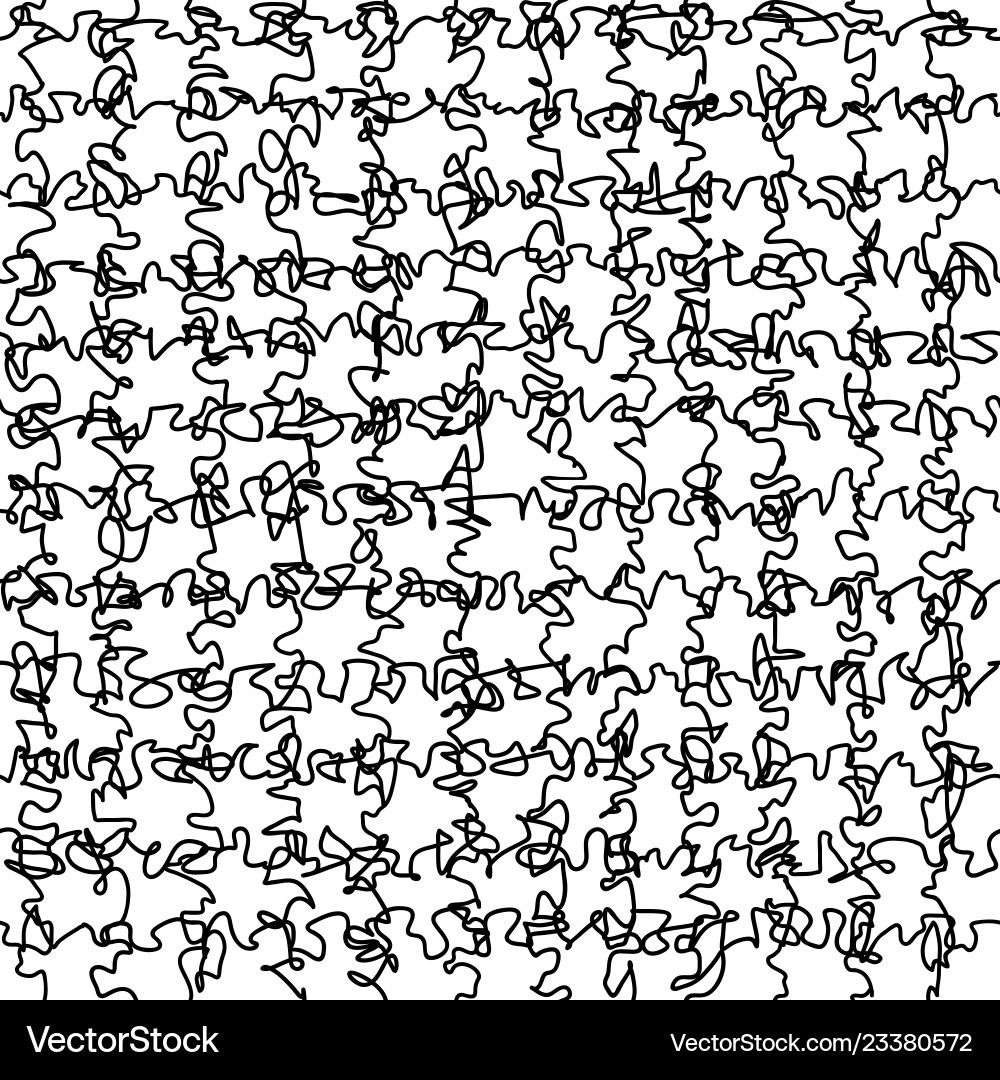 VectorStock
VectorStock.com/23380572